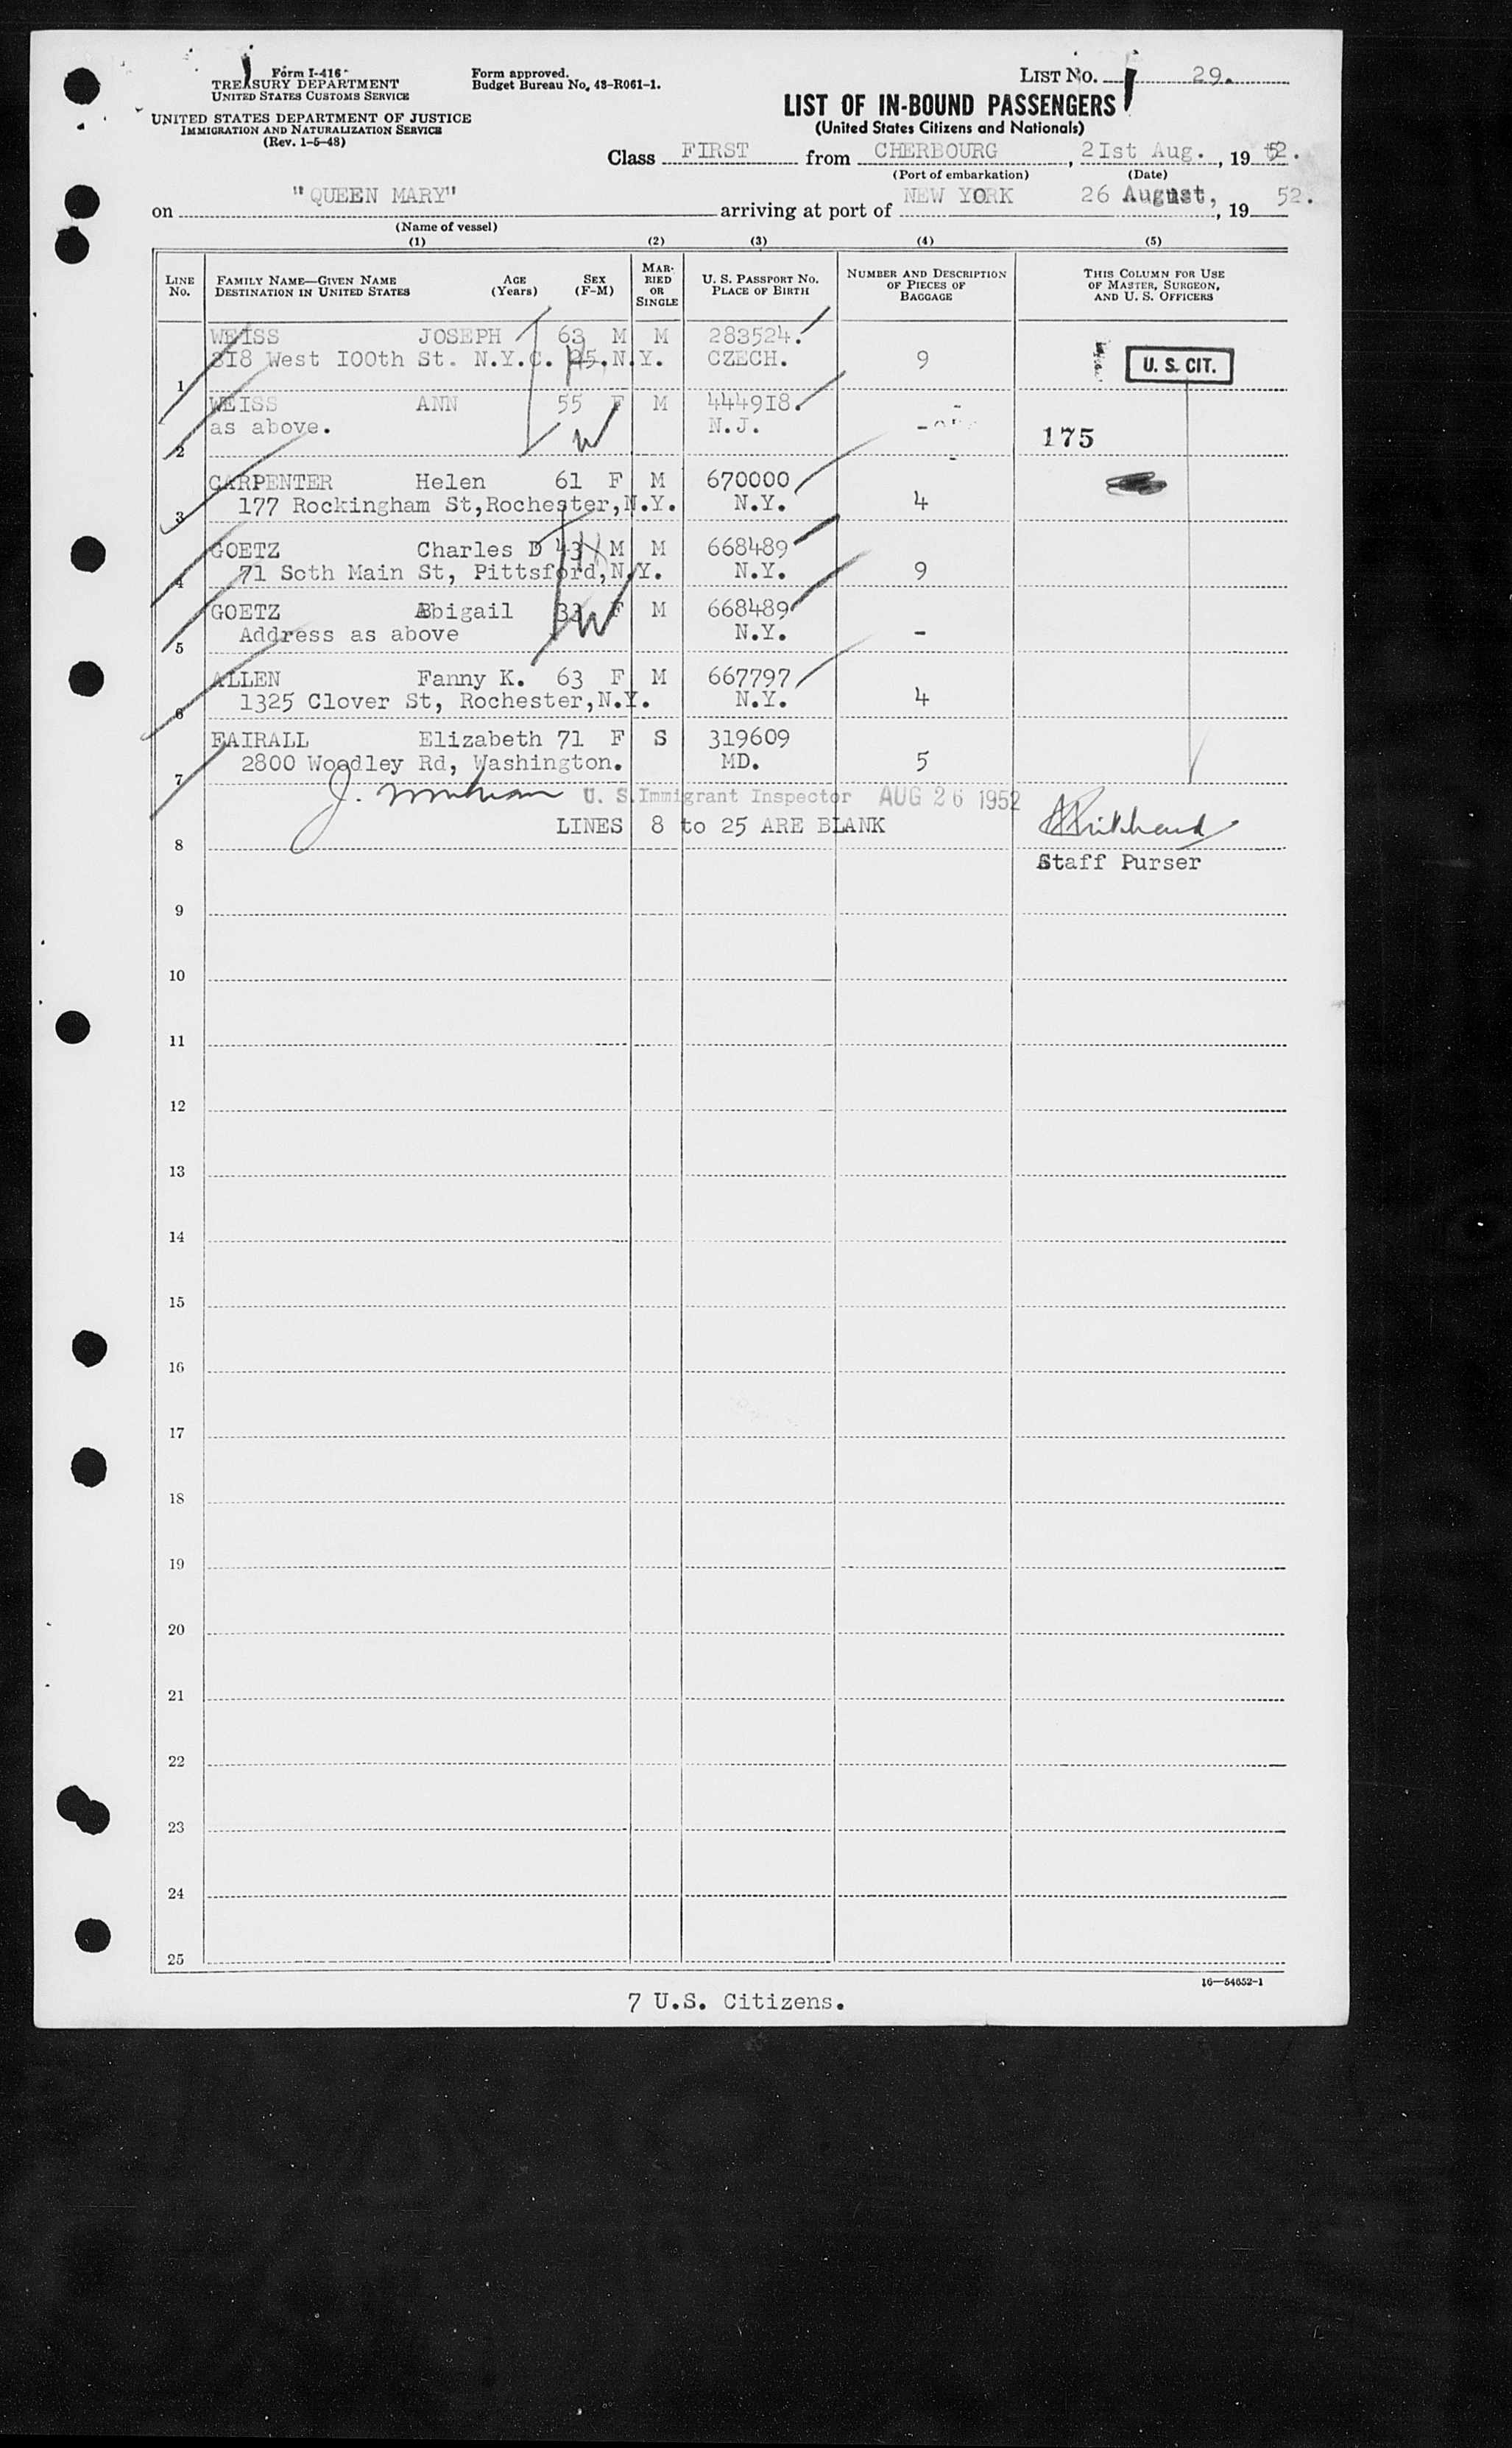 Form I-416
TREASURY DEPARTMENT
UNITED STATES CUSTOMS SERVICE
UNITED STATES DEPARTMENT OF JUSTICE
IMMIGRATION AND NATURALIZATION SERVICE
(Rev. 1-5-48)
Form approved.
Budget Bureau No. 43-R061-1.
LIST NO. 29.
LIST OF IN-BOUND PASSENGERS
(United States Citizens and Nationals)
Class FIRST from CHERBOURG, 2Ist Aug., 19 52.
(Port of embarkation) (Date)
on "QUEEN MARY" arriving at port of NEW YORK 26 August, 19 52.
(Name of vessel)
(1) (2) (3) (4) (5)
LINE No. FAMILY NAME—GIVEN NAME DESTINATION IN UNITED STATES AGE (Years) SEX (F-M) MARRIED OR SINGLE U. S. PASSPORT NO. PLACE OF BIRTH NUMBER AND DESCRIPTION OF PIECES OF BAGGAGE THIS COLUMN FOR USE OF MASTER, SURGEON, AND U. S. OFFICERS
WEISS JOSEPH 63 M M 283524.
1 218 West I00th St. N.Y.C. 25.N.Y. CZECH. 9 U. S. CIT.
WEISS ANN 55 F M 4449I8.
2 as above. N.J. - 175
CARPENTER Helen 61 F M 670000
3 177 Rockingham St,Rochester,N.Y. N.Y. 4
GOETZ Charles D 43 M M 668489
4 71 Soth Main St, Pittsford,N.Y. N.Y. 9
GOETZ Abigail 33 F M 668489
5 Address as above N.Y. -
ALLEN Fanny K. 63 F M 667797
6 1325 Clover St, Rochester,N.Y. N.Y. 4
FAIRALL Elizabeth 71 F S 319609
7 2800 Woodley Rd, Washington. MD. 5
J. U. S. Immigrant Inspector AUG 26 1952
8 LINES 8 to 25 ARE BLANK
Staff Purser
9
10
11
12
13
14
15
16
17
18
19
20
21
22
23
24
25
16—54652-1
7 U.S. Citizens.